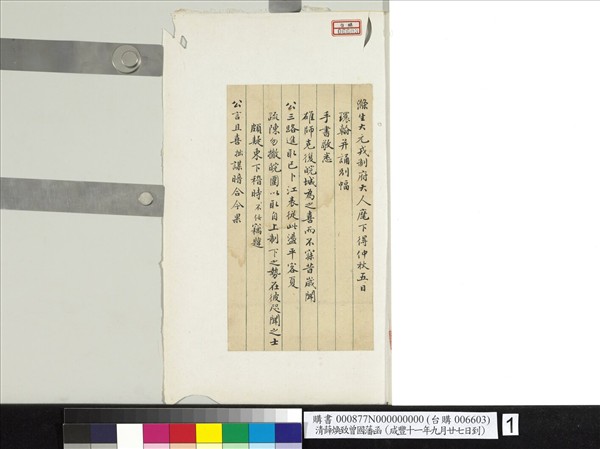 滌生大元戎制府大人麾下得仲秋五日
瑤翰并誦別幅
手書敬悉
雄師克復皖城為之喜而不寐昔歲聞
公三路進取已卜江表從此盪平客夏
疏陳勿撤皖圍以取自上制下之勢在彼咫聞之士
頗疑東下稽時不仕竊韙
公言且喜拙謀暗合今果
台購
購書 000877N000000000 (台購 006603)
清薛煥致曾國藩函（咸豐十一年九月廿七日到）
1